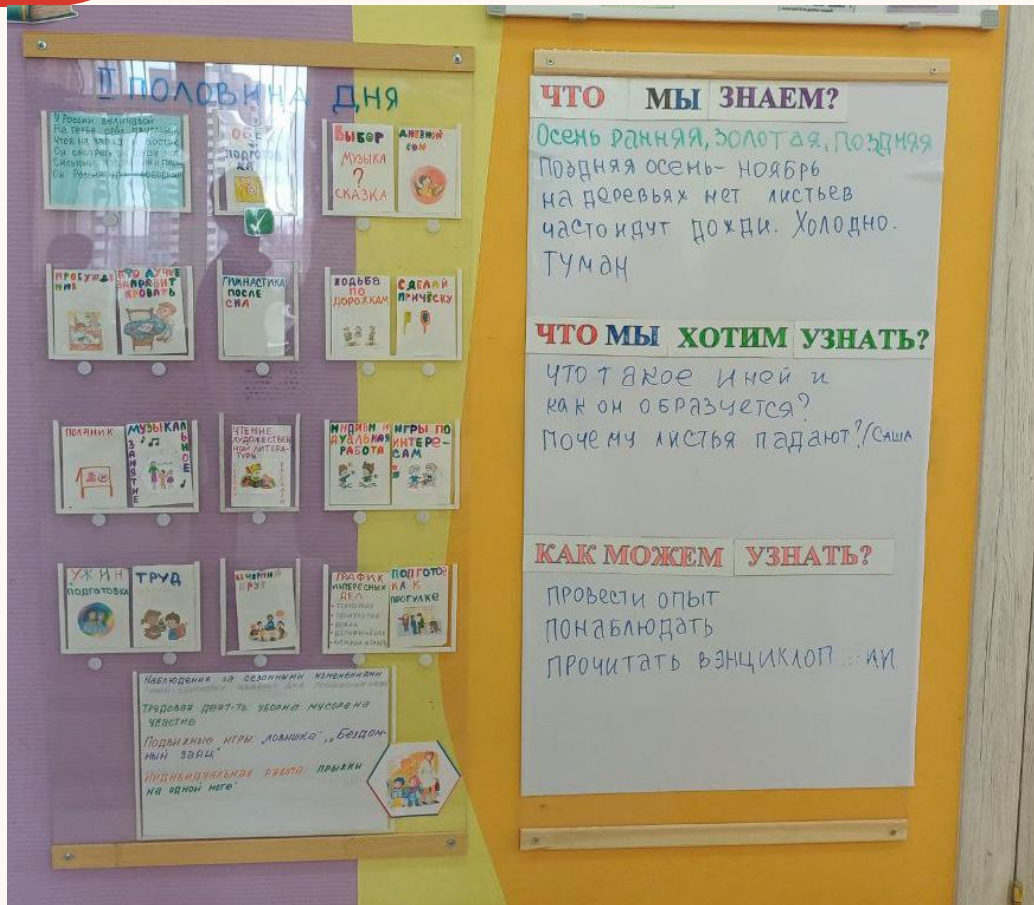 II ПОЛОВИНА ДНЯ
У России величавой
На гербе орёл двуглавый
Чтоб на запад на восток
Он смотреть бы сразу мог
ОБЕД
ПОДГОТОВКА
ВЫБОР
МУЗЫКА
?
СКАЗКА
ДНЕВНОЙ
СОН
ПРОБУЖДЕ
НИЕ
КТО ЛУЧШЕ
ЗАПРАВИТ
КРОВАТЬ
ГИМНАСТИКА
ПОСЛЕ
СНА
ХОДЬБА
ПО
ДОРОЖКАМ
СДЕЛАЙ
ПРИЧЁСКУ
ПОЛДНИК
МУЗЫКАЛЬНОЕ
ЗАНЯТИЕ
ЧТЕНИЕ
ХУДОЖЕСТВЕН
НОЙ ЛИТЕРА-
ТУРЫ
ИНДИВИ
ДУАЛЬНАЯ
РАБОТА
ИГРЫ ПО
ИНТЕРЕ-
САМ
УЖИН
ПОДГОТОВКА
ТРУД
ВЕЧЕРНИЙ
КРУГ
ГРАФИК
ИНТЕРЕСНЫХ
ДЕЛ
ПОДГОТОВ
КА К
ПРОГУЛКЕ
Наблюдения за сезонными изменениями
Трудовая деят-ть: уборка мусора на
участке
Подвижные игры: „Ловишка“, „Бездом-
ный заяц“
Индивидуальная работа: прыжки
на одной ноге
ЧТО МЫ ЗНАЕМ?
Осень ранняя, золотая, поздняя
Поздняя осень - ноябрь
на деревьях нет листьев
часто идут дожди. Холодно.
Туман
ЧТО МЫ ХОТИМ УЗНАТЬ?
Что такое иней и
как он образуется?
Почему листья падают?/Саша
КАК МОЖЕМ УЗНАТЬ?
Провести опыт
Понаблюдать
Прочитать в